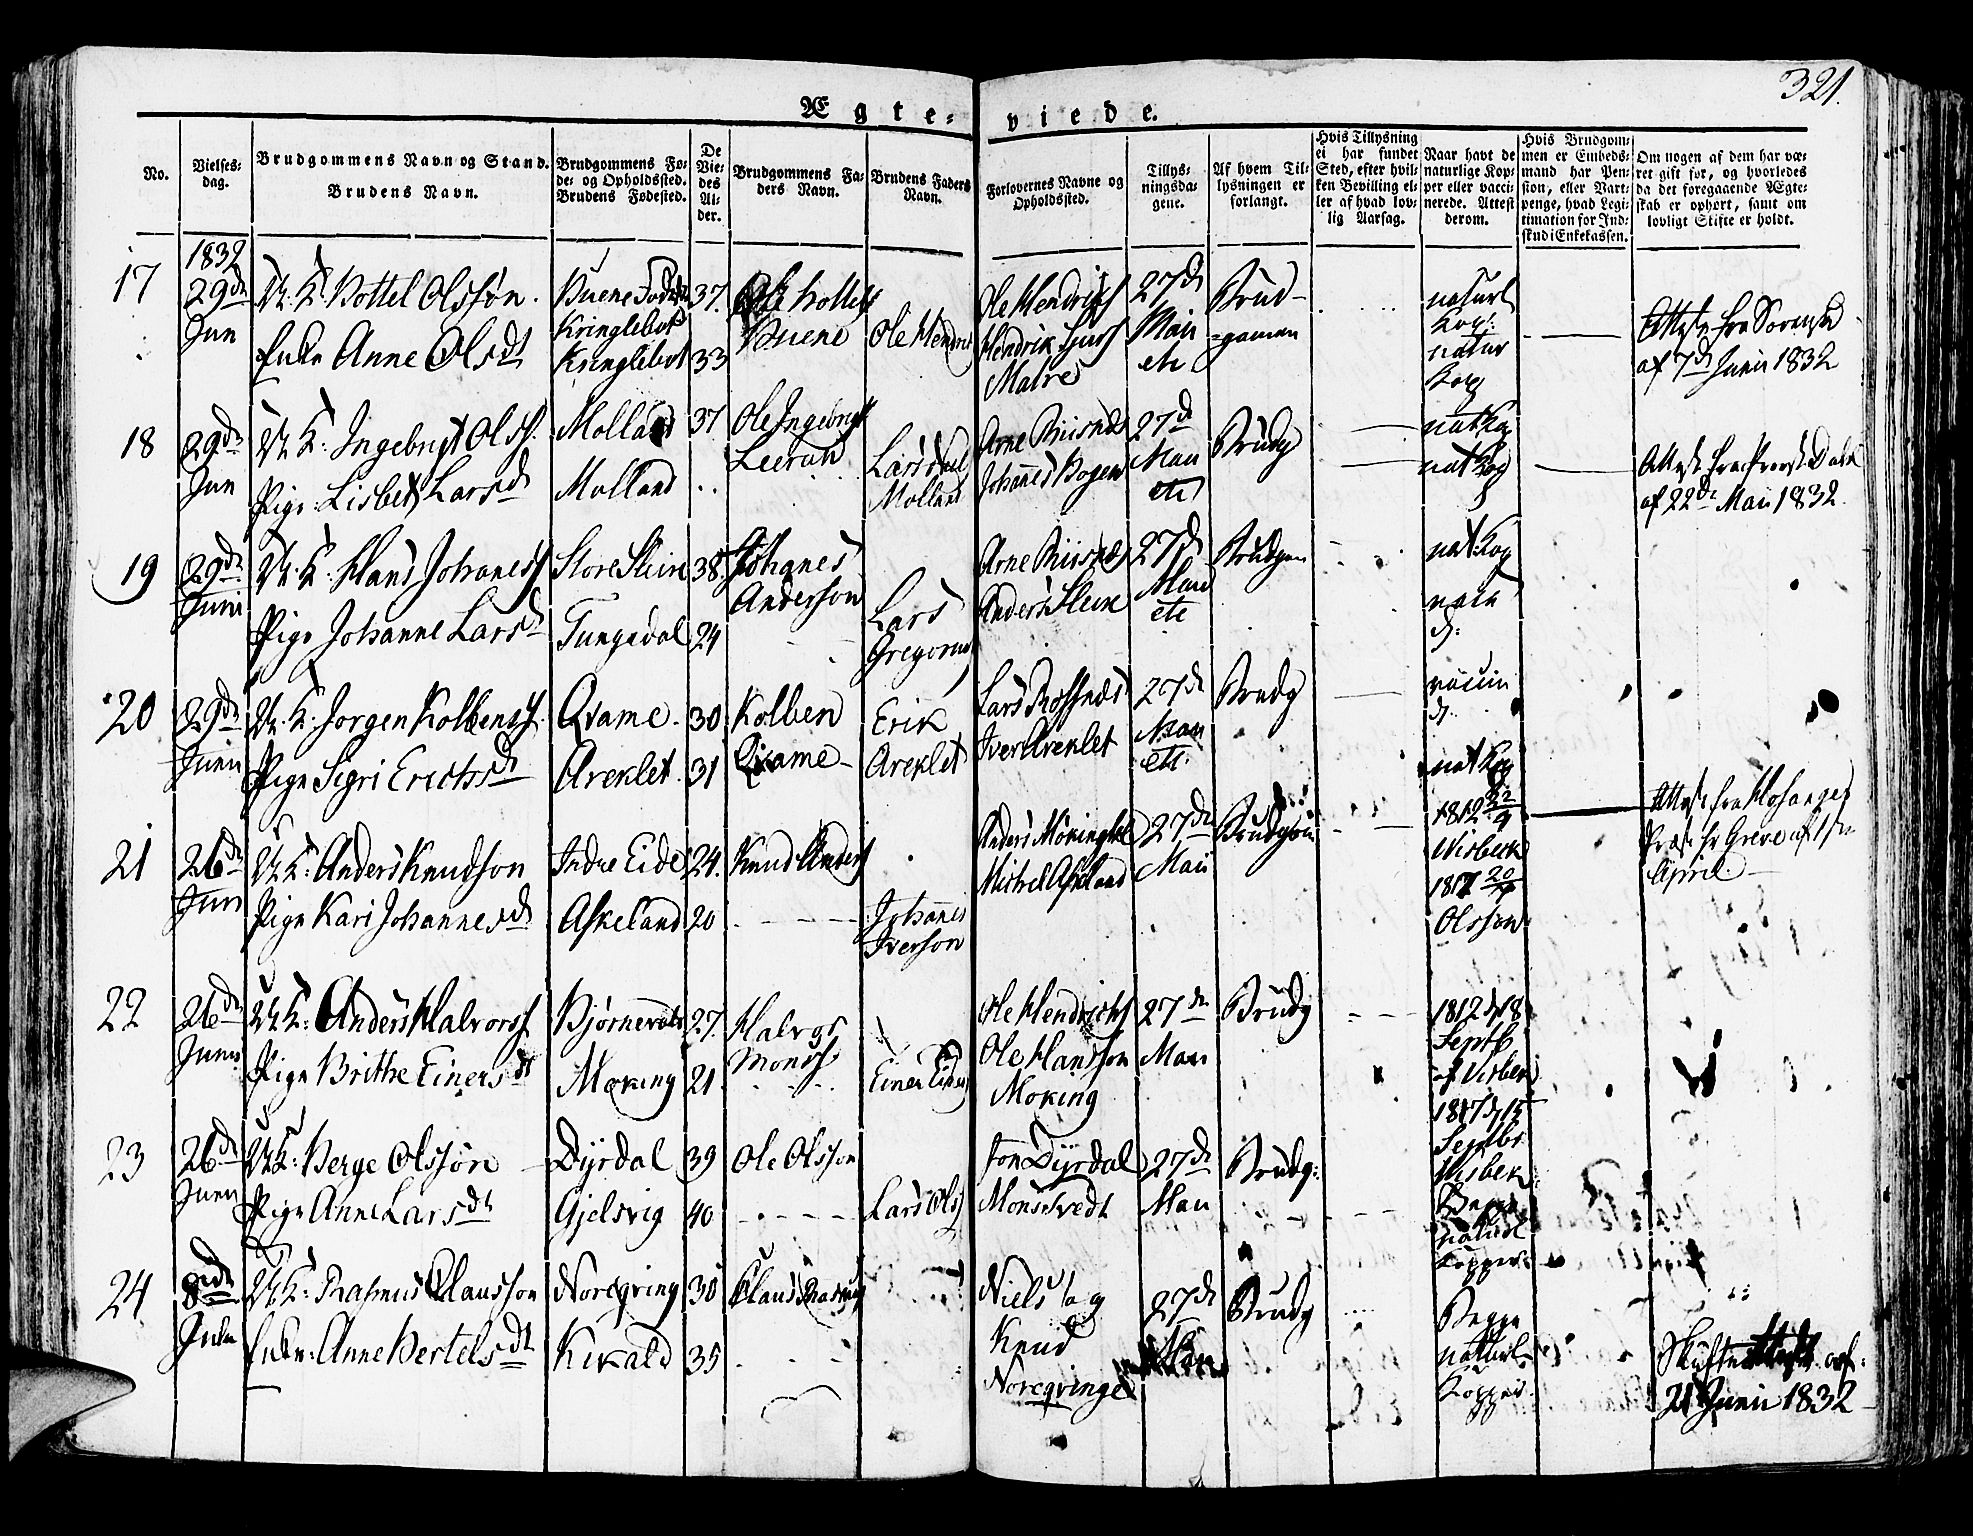 321.
Ægte-viede.
No.
Vielses-dag.
Brudgommens Navn og Stand.
Brudens Navn.
Brudgommens Fø-
de- og Opholdssted.
Brudens Fødested.
De
Vie-
des
Al-
der.
Brudgommens Fa-
ders Navn.
Brudens Faders
Navn.
Forlovernes Navne og
Opholdssted.
Tillys-
ningsda-
gene.
Af hvem Til-
lysningen er
forlangt.
Hvis Tillysning
ei har fundet
Sted, efter hvil-
ken Bevilling el-
ler af hvad lov-
lig Aarsag.
Naar havt de
naturlige Kop-
per eller vacci-
nerede. Attest
derom.
Hvis Brudgom-
men er Embeds-
mand har Pen-
sion, eller Vart-
penge, hvad Legi-
timation for Ind-
skud i Enkekassen.
Om nogen af dem har væ-
ret gift før, og hvorledes
da det foregaaende Ægte-
skab er ophørt, samt om
lovligt Skifte er holdt.
1832
17
29de
Jun
U. K. Bottel Olssøn.
Enke Anne Olsdt
Kringlebot
Kringlebot
37.
33
Buene
Ole Hendr
Ole Hendriks
Hendrik
Matre
27de
Maii
etc
Brud-
=gomen
naturl
Kop:
natur
Kop
Attest fra Sorensk
af 7de Junii 1832
18
29de
Jun
U. K. Ingebrigt Olss.
Pige Lisbet Larsd
Molland
Molland
37
Ole Ingebrigts
Leerah
Lars
Molland
Arne
Johannes Bogen
27de
Maii
etc
Brudg
nat Kop
nat Kop
Attest fra Provst Dahl
af 22de Maii 1832.
19
29de
Junii
U. K. Hans Johaness
Pige Johanne Larsd
Store Steen
Tungedal
38.
24
Johanes
Anderson
Lars
Gregorius
Arne
Anders Steen
27de
Maii
etc
Brudgom
nat: Kop
20
29de
Junii
U. K. Jorgen Kolbenss.
Pige Sigri Ericksd
Qvame
Areklet
30
31
Kolben
Qvame
Erik
Areklet
Lars
Iver Areklet
27de
Maii
etc.
Brudg
vaccin
nat Kop
21
26de
Junii
U. K. Anders Knudson
Pige Kari Johannesd
Indre Eide
Askeland
24.
20
Knud Anders
Johannes
Iverson
Anders
Michel Askeland
27de
Maii
Brudgom
1812 22/9
Wisbeck
1817 20/9
Olsson
Attest fra Hosanger
Præst hr Greve af
April.
22
26de
Junii
U. K. Anders Halvorss.
Pige Brithe Einersdt
Moking
27.
21
Halvor
Monss
Einer
Ole Hendrichs
Ole Hansson
Moking
27de
Maii
Brudg
1812 d. 18
Septb
af Visbek
1817 d 15
Septbr
Wisbek
23
26de
Junii
U. K. Berge Olssøn
Pige Anne Larsdt
Dyrdal
Gjelsvig
39
40
Ole Olsson
Lars Ols
Jon Dyrdal
Mons Tvedt
27de
Maii
Brudg:
Begge
naturl
Kopper
24
8de
Julii
U. K. Rasmus Claussøn
Enke: Anne Bertelsdt
Noreqving
Kikald
38
35
Claus Rasmus
Niels og
Knud
Noreqvinge
27de
Brudg
Begge
naturl
Kopper
Skifte Attest af
21 Junii 1832